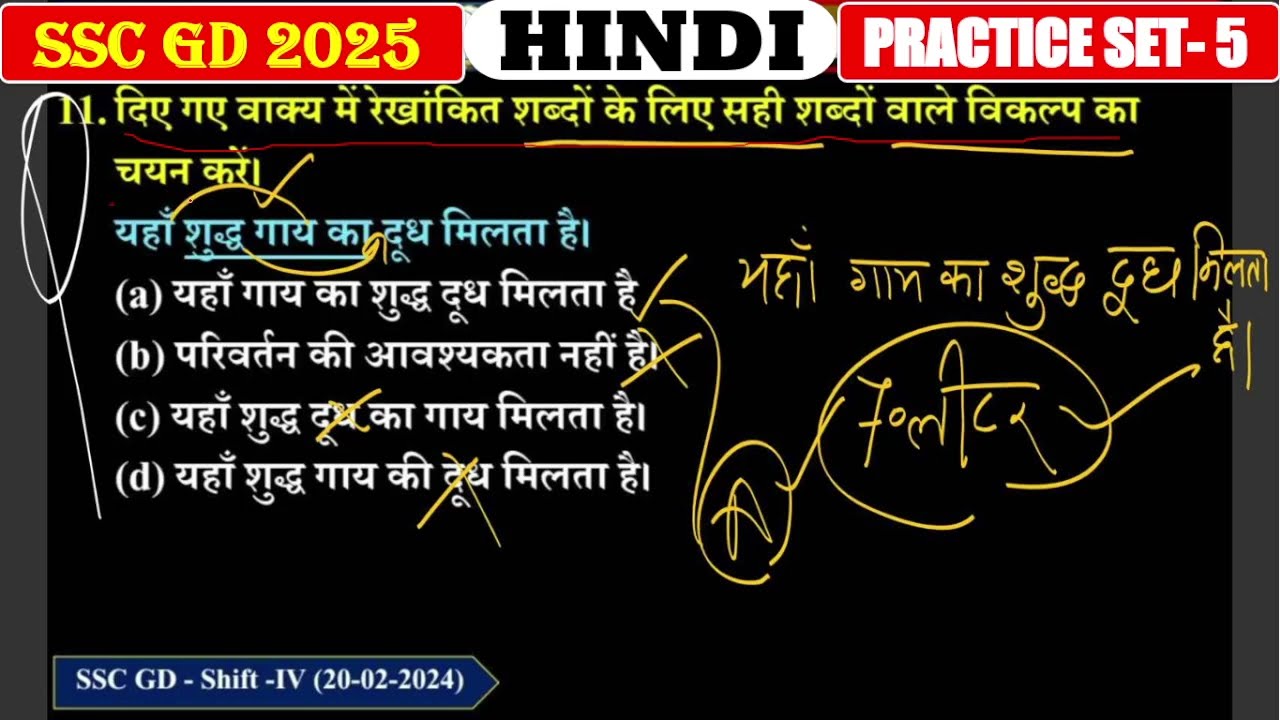 SSC GD 2025 HINDI PRACTICE SET- 5
11. दिए गए वाक्य में रेखांकित शब्दों के लिए सही शब्दों वाले विकल्प का
चयन करें।
यहाँ शुद्ध गाय का दूध मिलता है।
(a) यहाँ गाय का शुद्ध दूध मिलता है
(b) परिवर्तन की आवश्यकता नहीं है।
(c) यहाँ शुद्ध दूध का गाय मिलता है।
(d) यहाँ शुद्ध गाय की दूध मिलता है।
यहाँ गाय का शुद्ध दूध मिलता
है।
A
SSC GD - Shift -IV (20-02-2024)